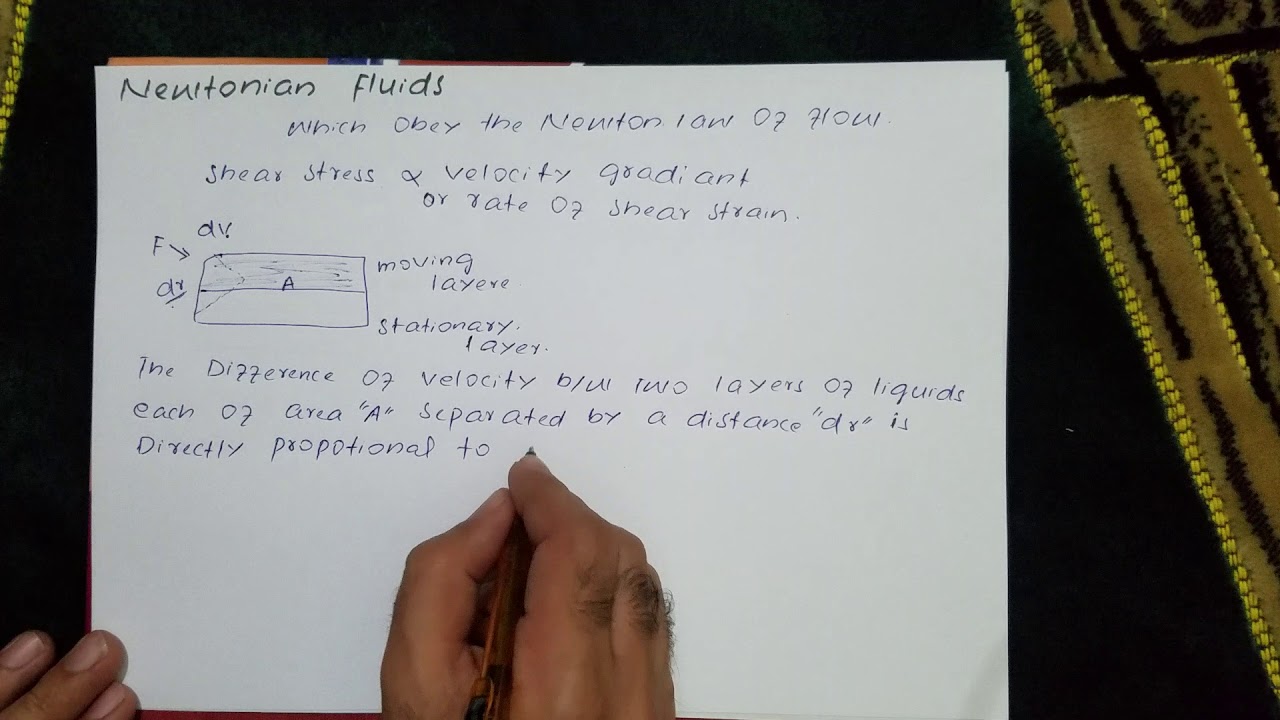 Newtonian Fluids
Which obey the Newton law Of flow.
Shear stress ∝ velocity gradiant
or rate Of shear strain.
dv
F
moving
layere
dr
A
stationary.
layer.
The Difference Of velocity b/w two layers Of liquids
each Of area "A" separated by a distance "dr" is
Directly propotional to